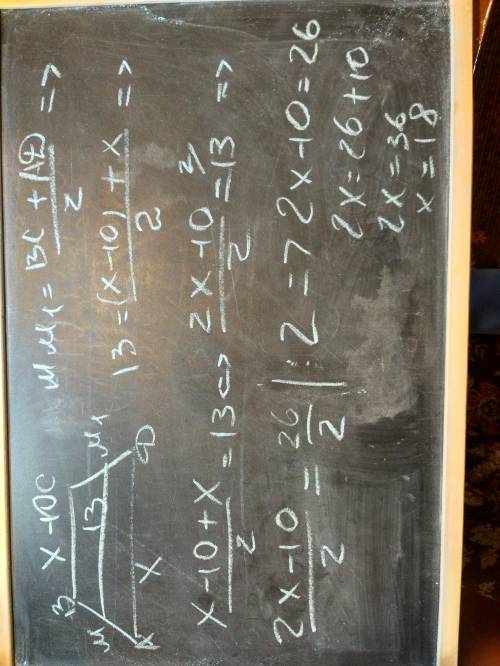 B x-10 C
M 13 M₁
A x D
MM₁ = BC + AD / 2 =>
13 = (x-10) + x / 2 =>
x-10+x / 2 = 13 <=> 2x-10 / 2 = 13 =>
2x-10 / 2 = 26 / 2 | : 2 => 2x-10 = 26
2x = 26 + 10
2x = 36
x = 18